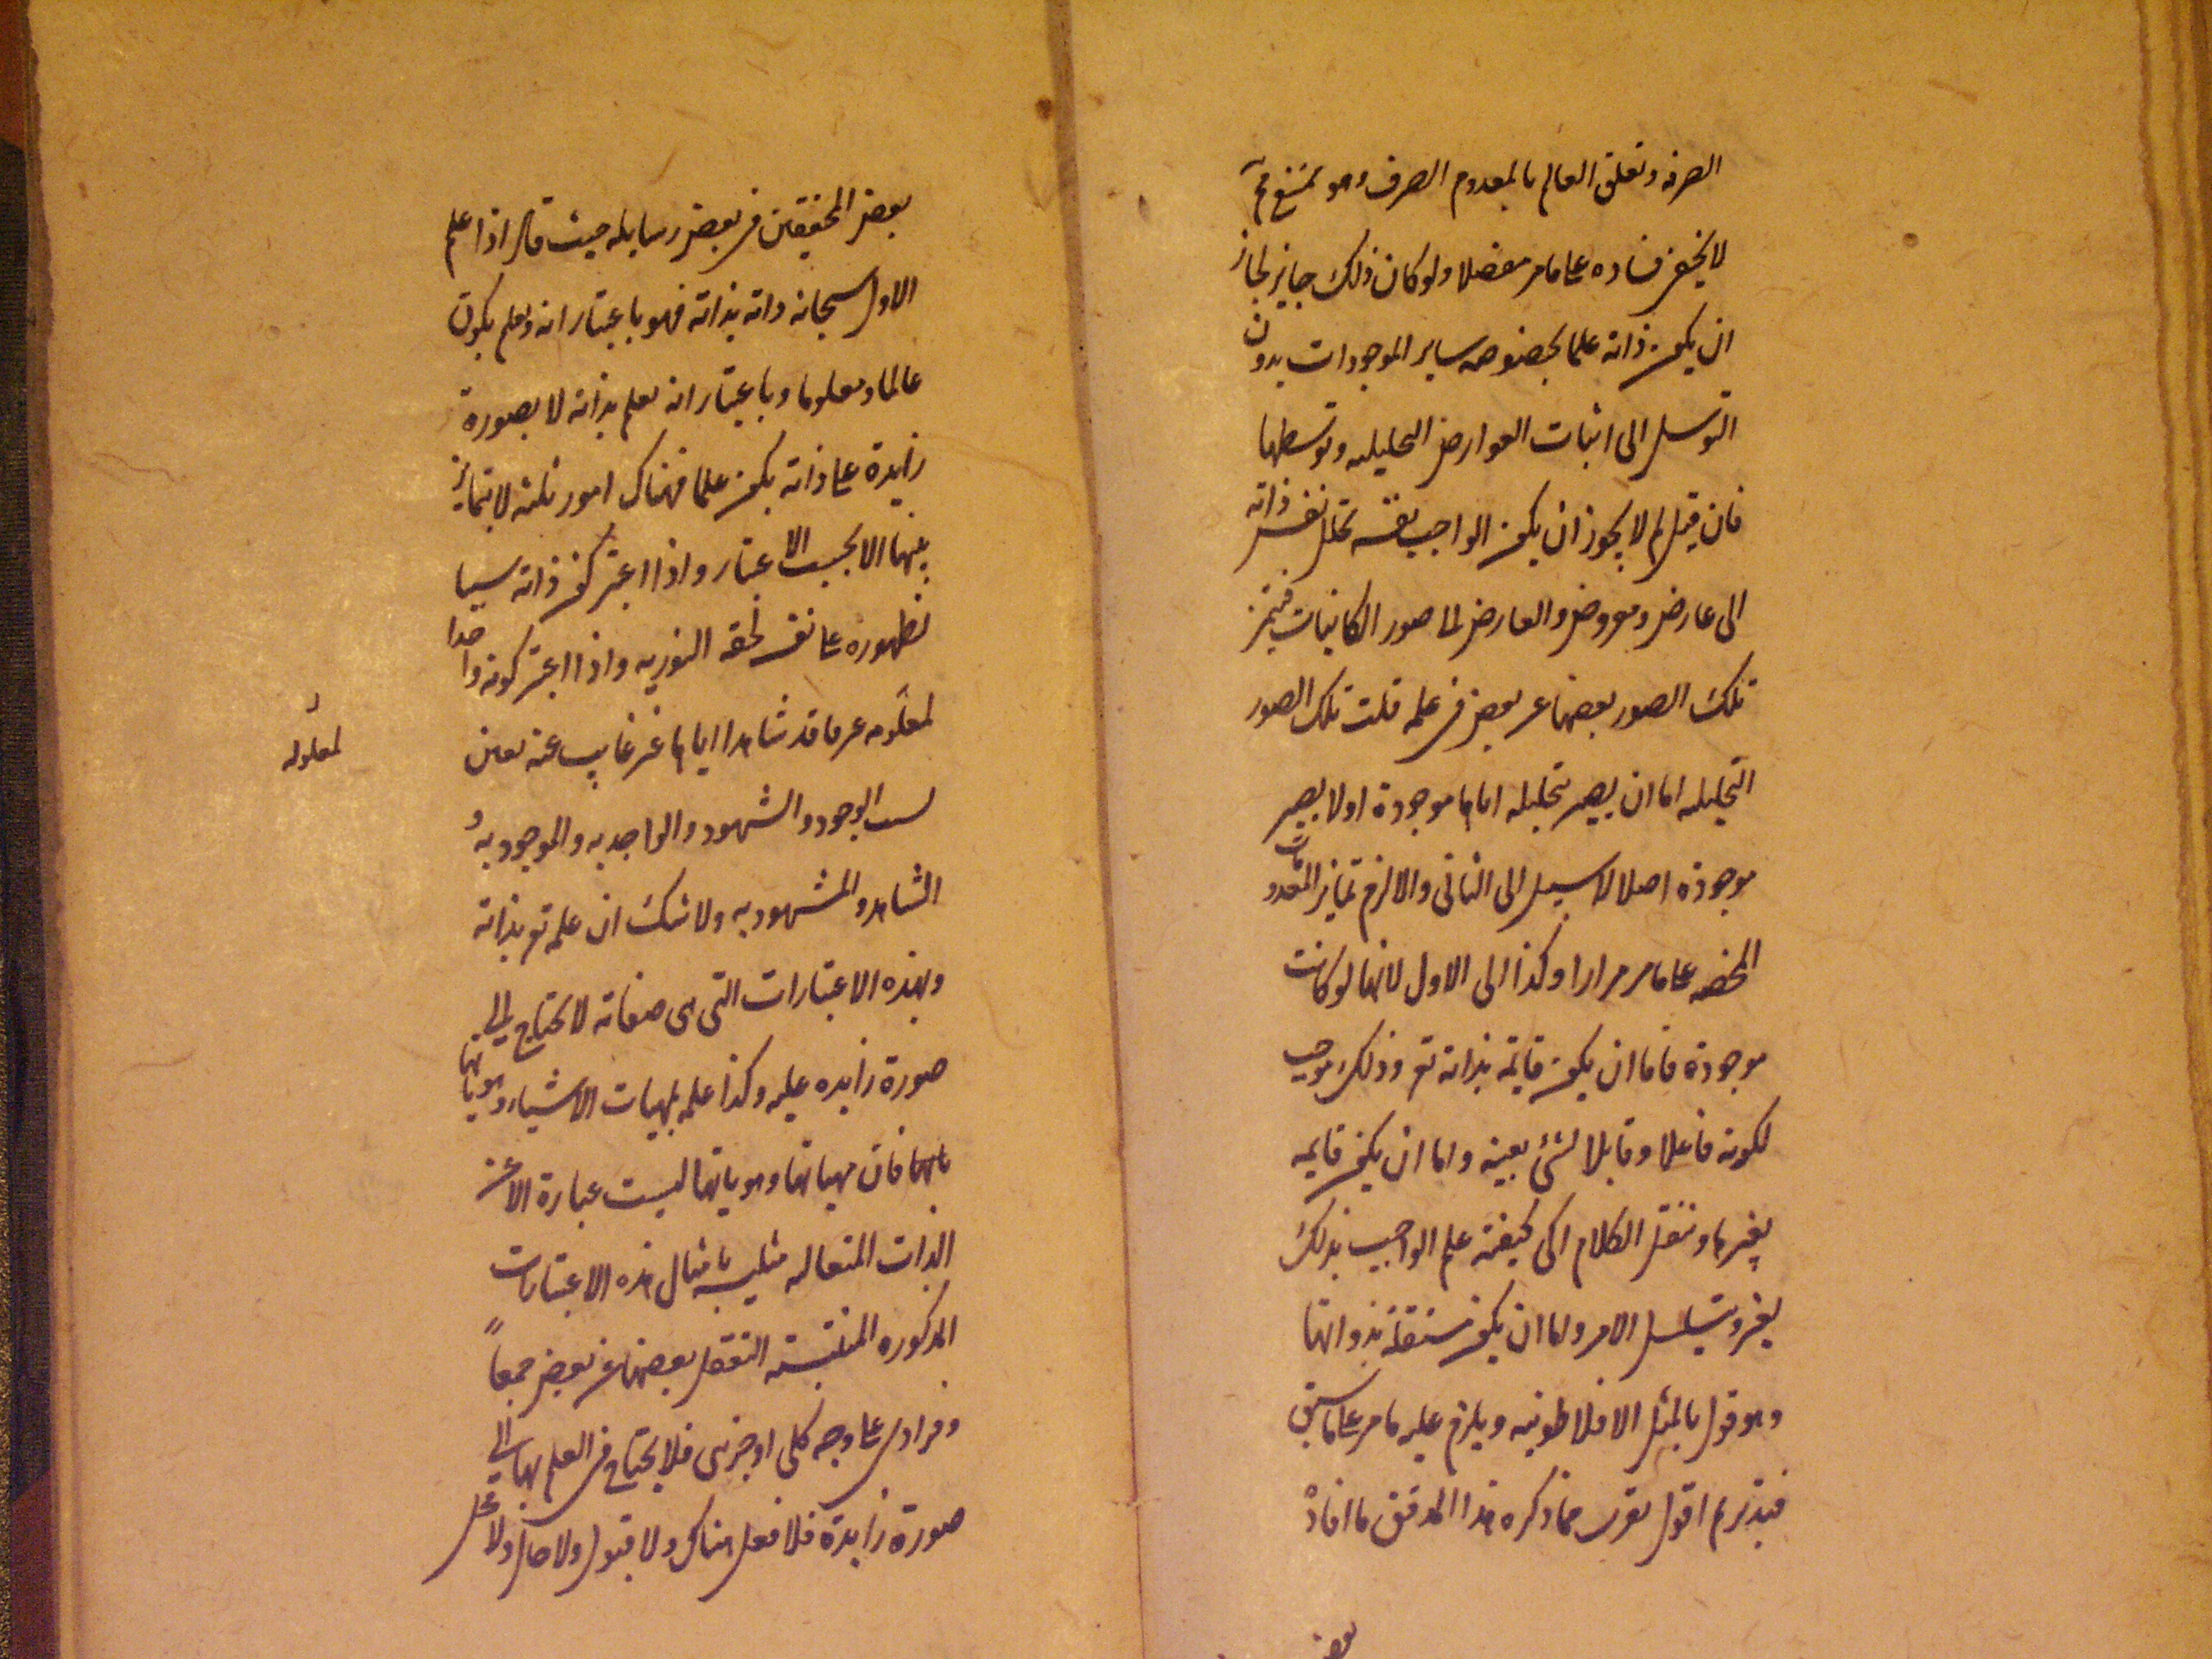 الصرفه وتعلق العالم بالمعدوم الصرف وهو ممتنع
لا يخفى فساده على ما مر مفصلا ولو كان ذلك جايز لجاز
ان يكون ذاته علما بخصوصه ساير الموجودات بدون
التوسل الى اثبات العوارض التحليليه وتوسطها
فان قيل لم لا يجوز ان يكون الواجب نفسه تحلل نفس ذاته
الى عارض ومعروض والعارض لها صور الكاينات فيتميز
تلك الصور بعضها عن بعض في علمه قلت تلك الصور
التحليليه اما ان يصير بتحليله اياها موجودة او لا يصير
موجوده اصلا لا سبيل الى الثانى والا لزم تمايز المعدومات
المحضه على ما مر مرارا وكذا الى الاول لانها لو كانت
موجودة فاما ان يكون قايمة بذاته تع وذلك موجب
لكونه فاعلا وقابلا لشئ بعينه واما ان يكون قايمه
بغيرها وننقل الكلام الى كيفية علم الواجب بذلك
بغير ويتسلسل الامر واما ان يكون مستقلة بذواتها
وهو قول بالمثل الافلاطونيه ويلزم عليه ما مر على ما سبق
فتدبر ثم اقول يقرب مما ذكره هذا المدقق ما افاده
بعض
بعض المحققين في بعض رسايله حيث قال اذا علم
الاول سبحانه ذاته بذاته فهو باعتبار انه ويعلم يكون
عالما ومعلوما وباعتبار انه يعلم بذاته لا بصورة
زايدة على ذاته يكون علما فهناك امور ثلثه لا يتمايز
بينها الا بحسب الاعتبار واذا اعتبر كون ذاته سببا
لظهوره على نفسه لحقه النوريه واذا اعتبر كونه واحدا
لمعلومه غير فاقد شاهدا اياها غير غايب عنه تعين
نسب الوجود والشهود والواجديه والموجوديه و
الشاهد والمشهوديه ولا شك ان علمه تع بذاته
وبهذه الاعتبارات التى هى صفاته لا يحتاج الى
صورة زايده عليه وكذا علمه بمهيات الاشياء وهوياتها
فان مهياتها وهوياتها ليست عبارة الا عن
الذات المتعاليه متلبسة بامثال هذه الاعتبارات
المذكوره المنتسبة التعقل بعضها عن بعض جمعاً
وفرادى على وجه كلى او جزئى فلا يحتاج فى العلم بها الى
صورة زايدة فلا فعل هناك ولا قبول ولا حال ولا محل
لمعلوله